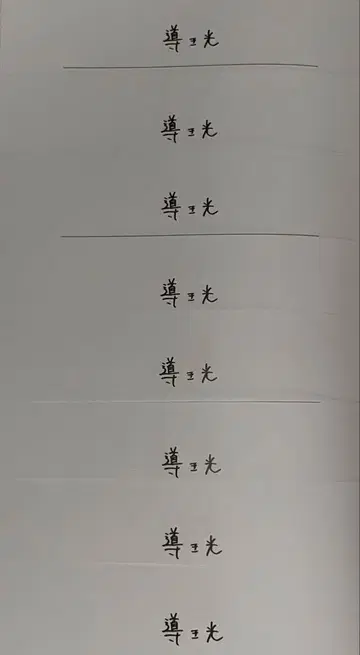 導王光
導王光
導王光
導王光
導王光
導王光
導王光
導王光